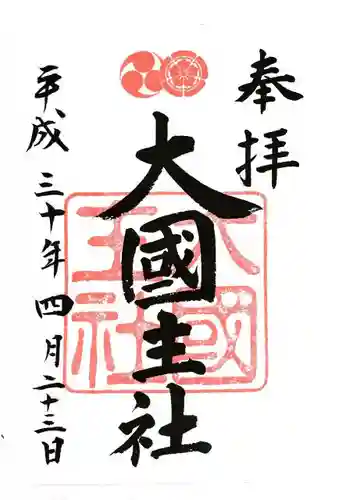 奉拝
大國主社
大國主社
平成三十年四月二十三日